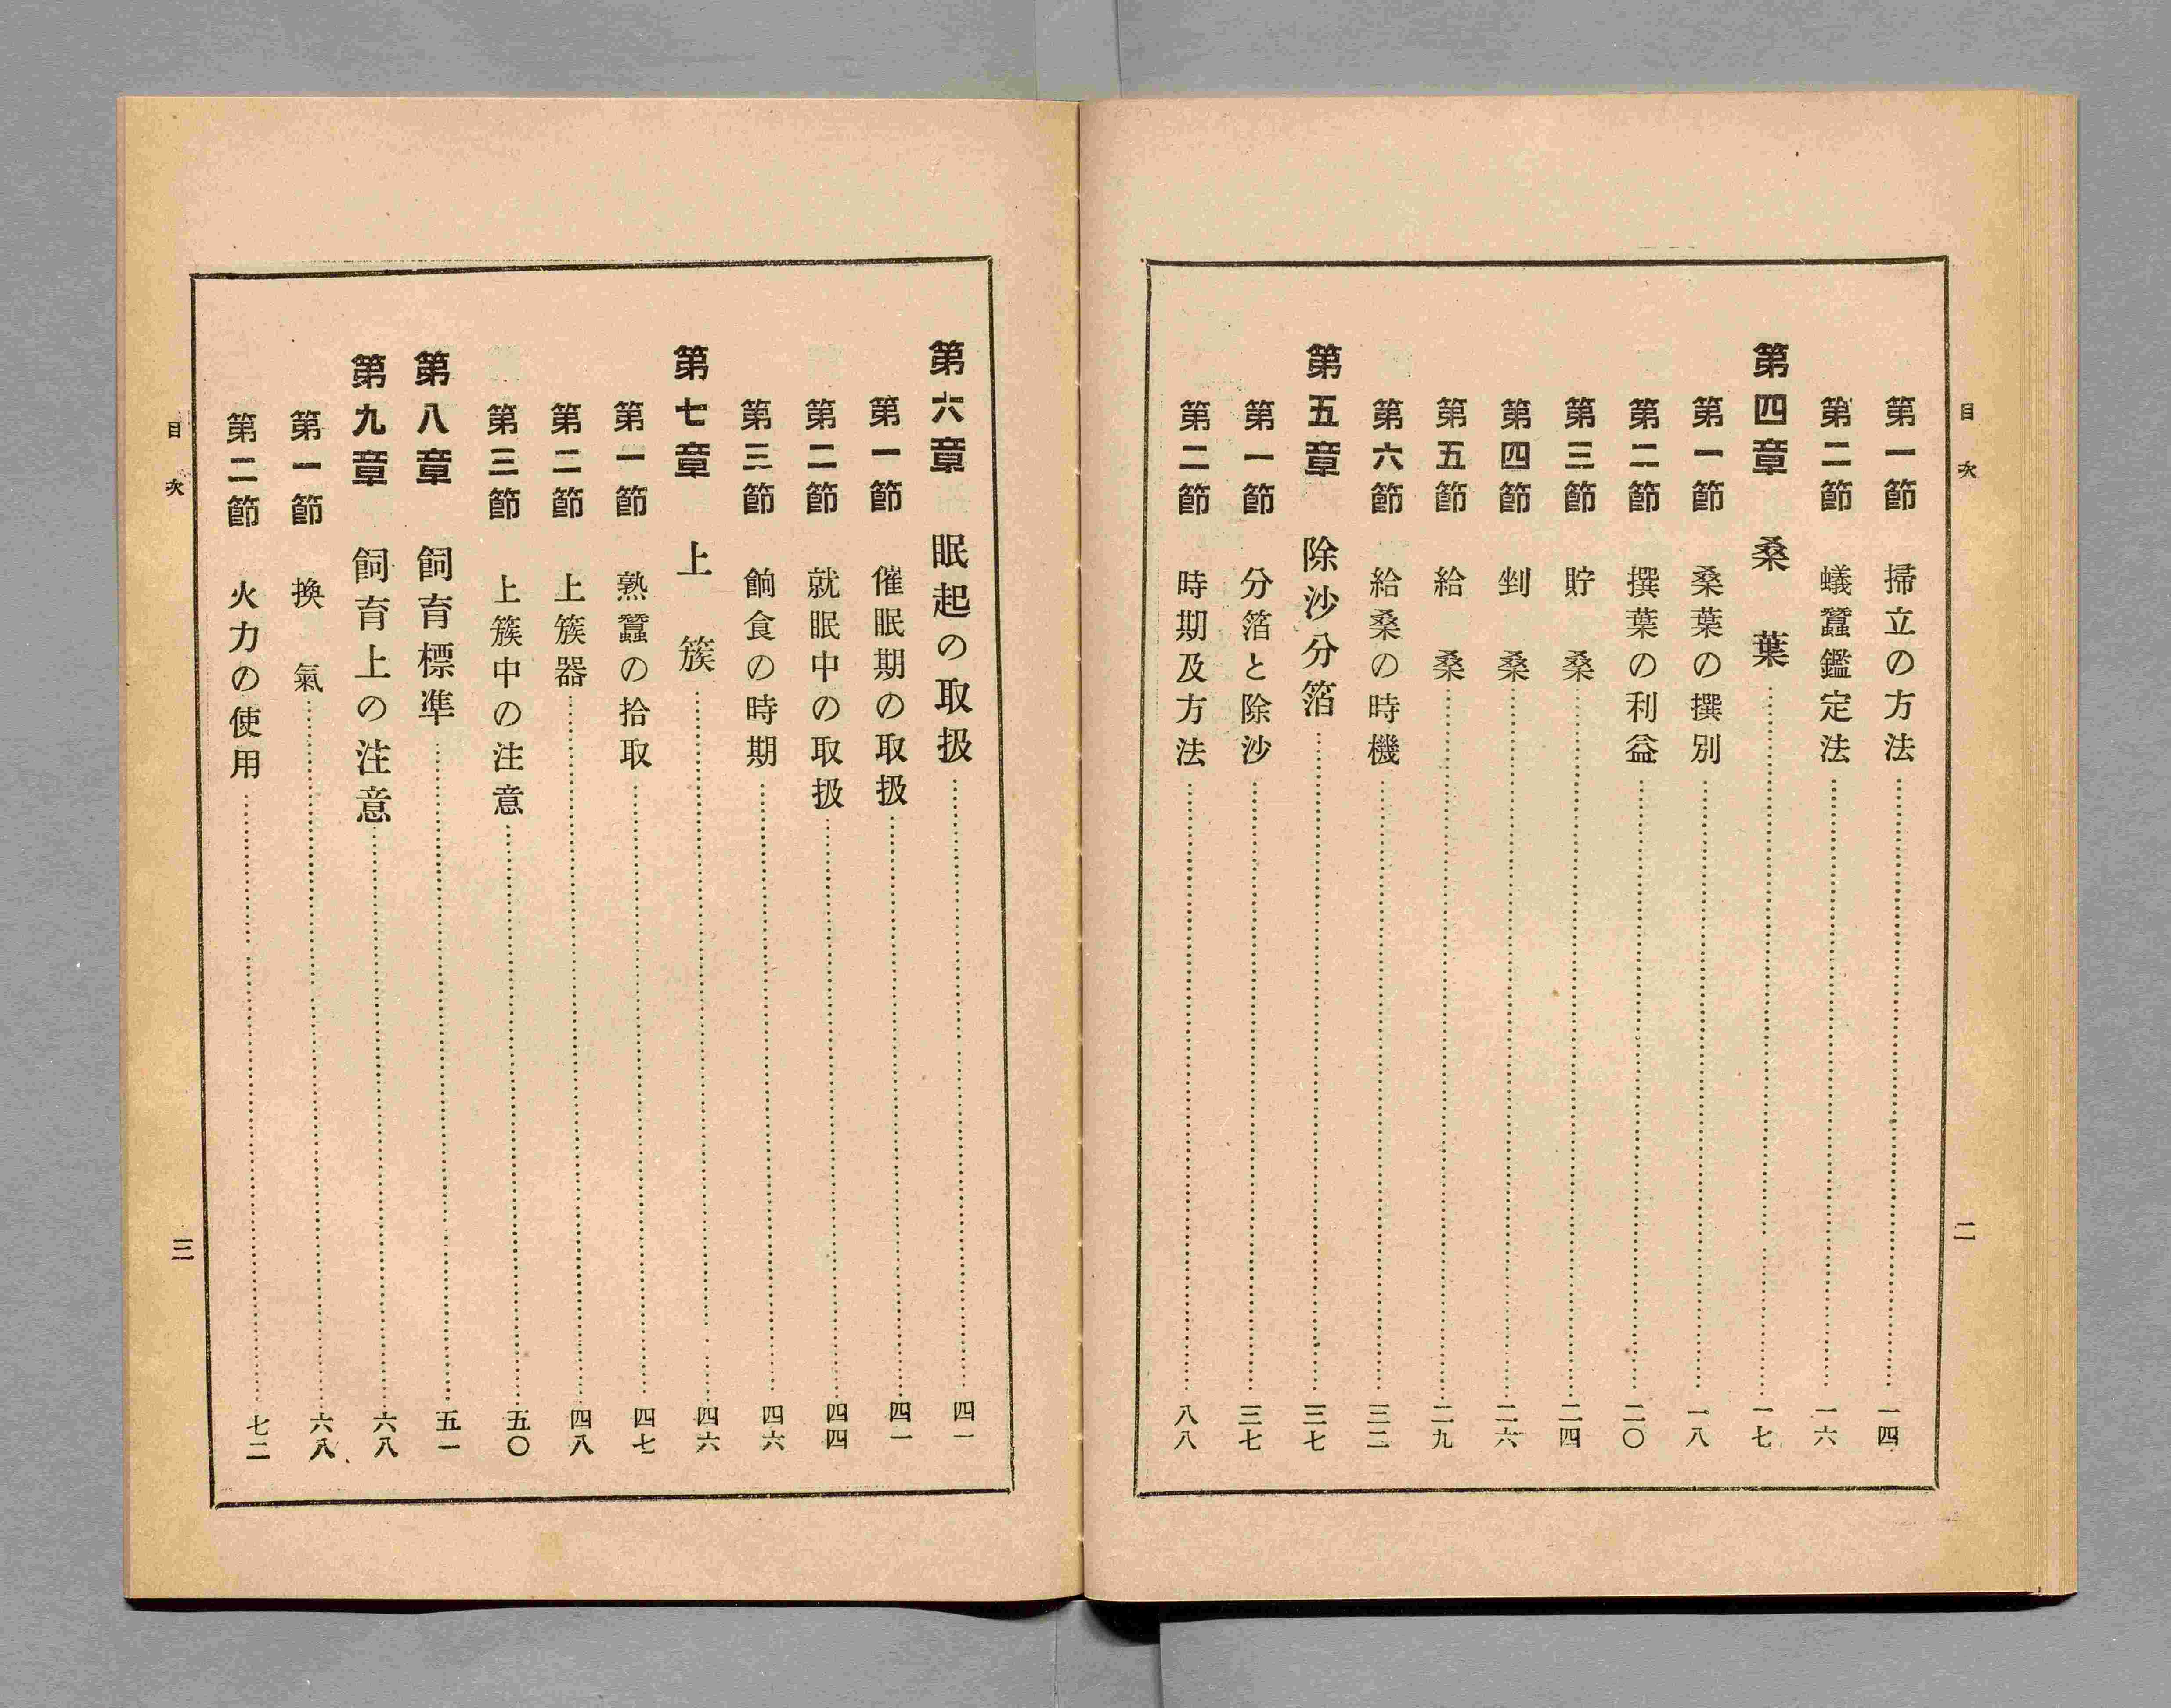 目次
二
第一節 掃立の方法…………一四
第二節 蟻蠶鑑定法…………一六
第四章 桑葉…………一七
第一節 桑葉の撰別…………一八
第二節 撰葉の利益…………二〇
第三節 貯桑…………二四
第四節 剉桑…………二六
第五節 給桑…………二九
第六節 給桑の時機…………三二
第五章 除沙分箔…………三七
第一節 分箔と除沙…………三七
第二節 時期及方法…………八八
第六章 眠起の取扱…………四一
第一節 催眠期の取扱…………四一
第二節 就眠中の取扱…………四四
第三節 餉食の時期…………四六
第七章 上簇…………四六
第一節 熟蠶の拾取…………四七
第二節 上簇器…………四八
第三節 上簇中の注意…………五〇
第八章 飼育標準…………五一
第九章 飼育上の注意…………六八
第一節 換氣…………六八
第二節 火力の使用…………七二
目次
三